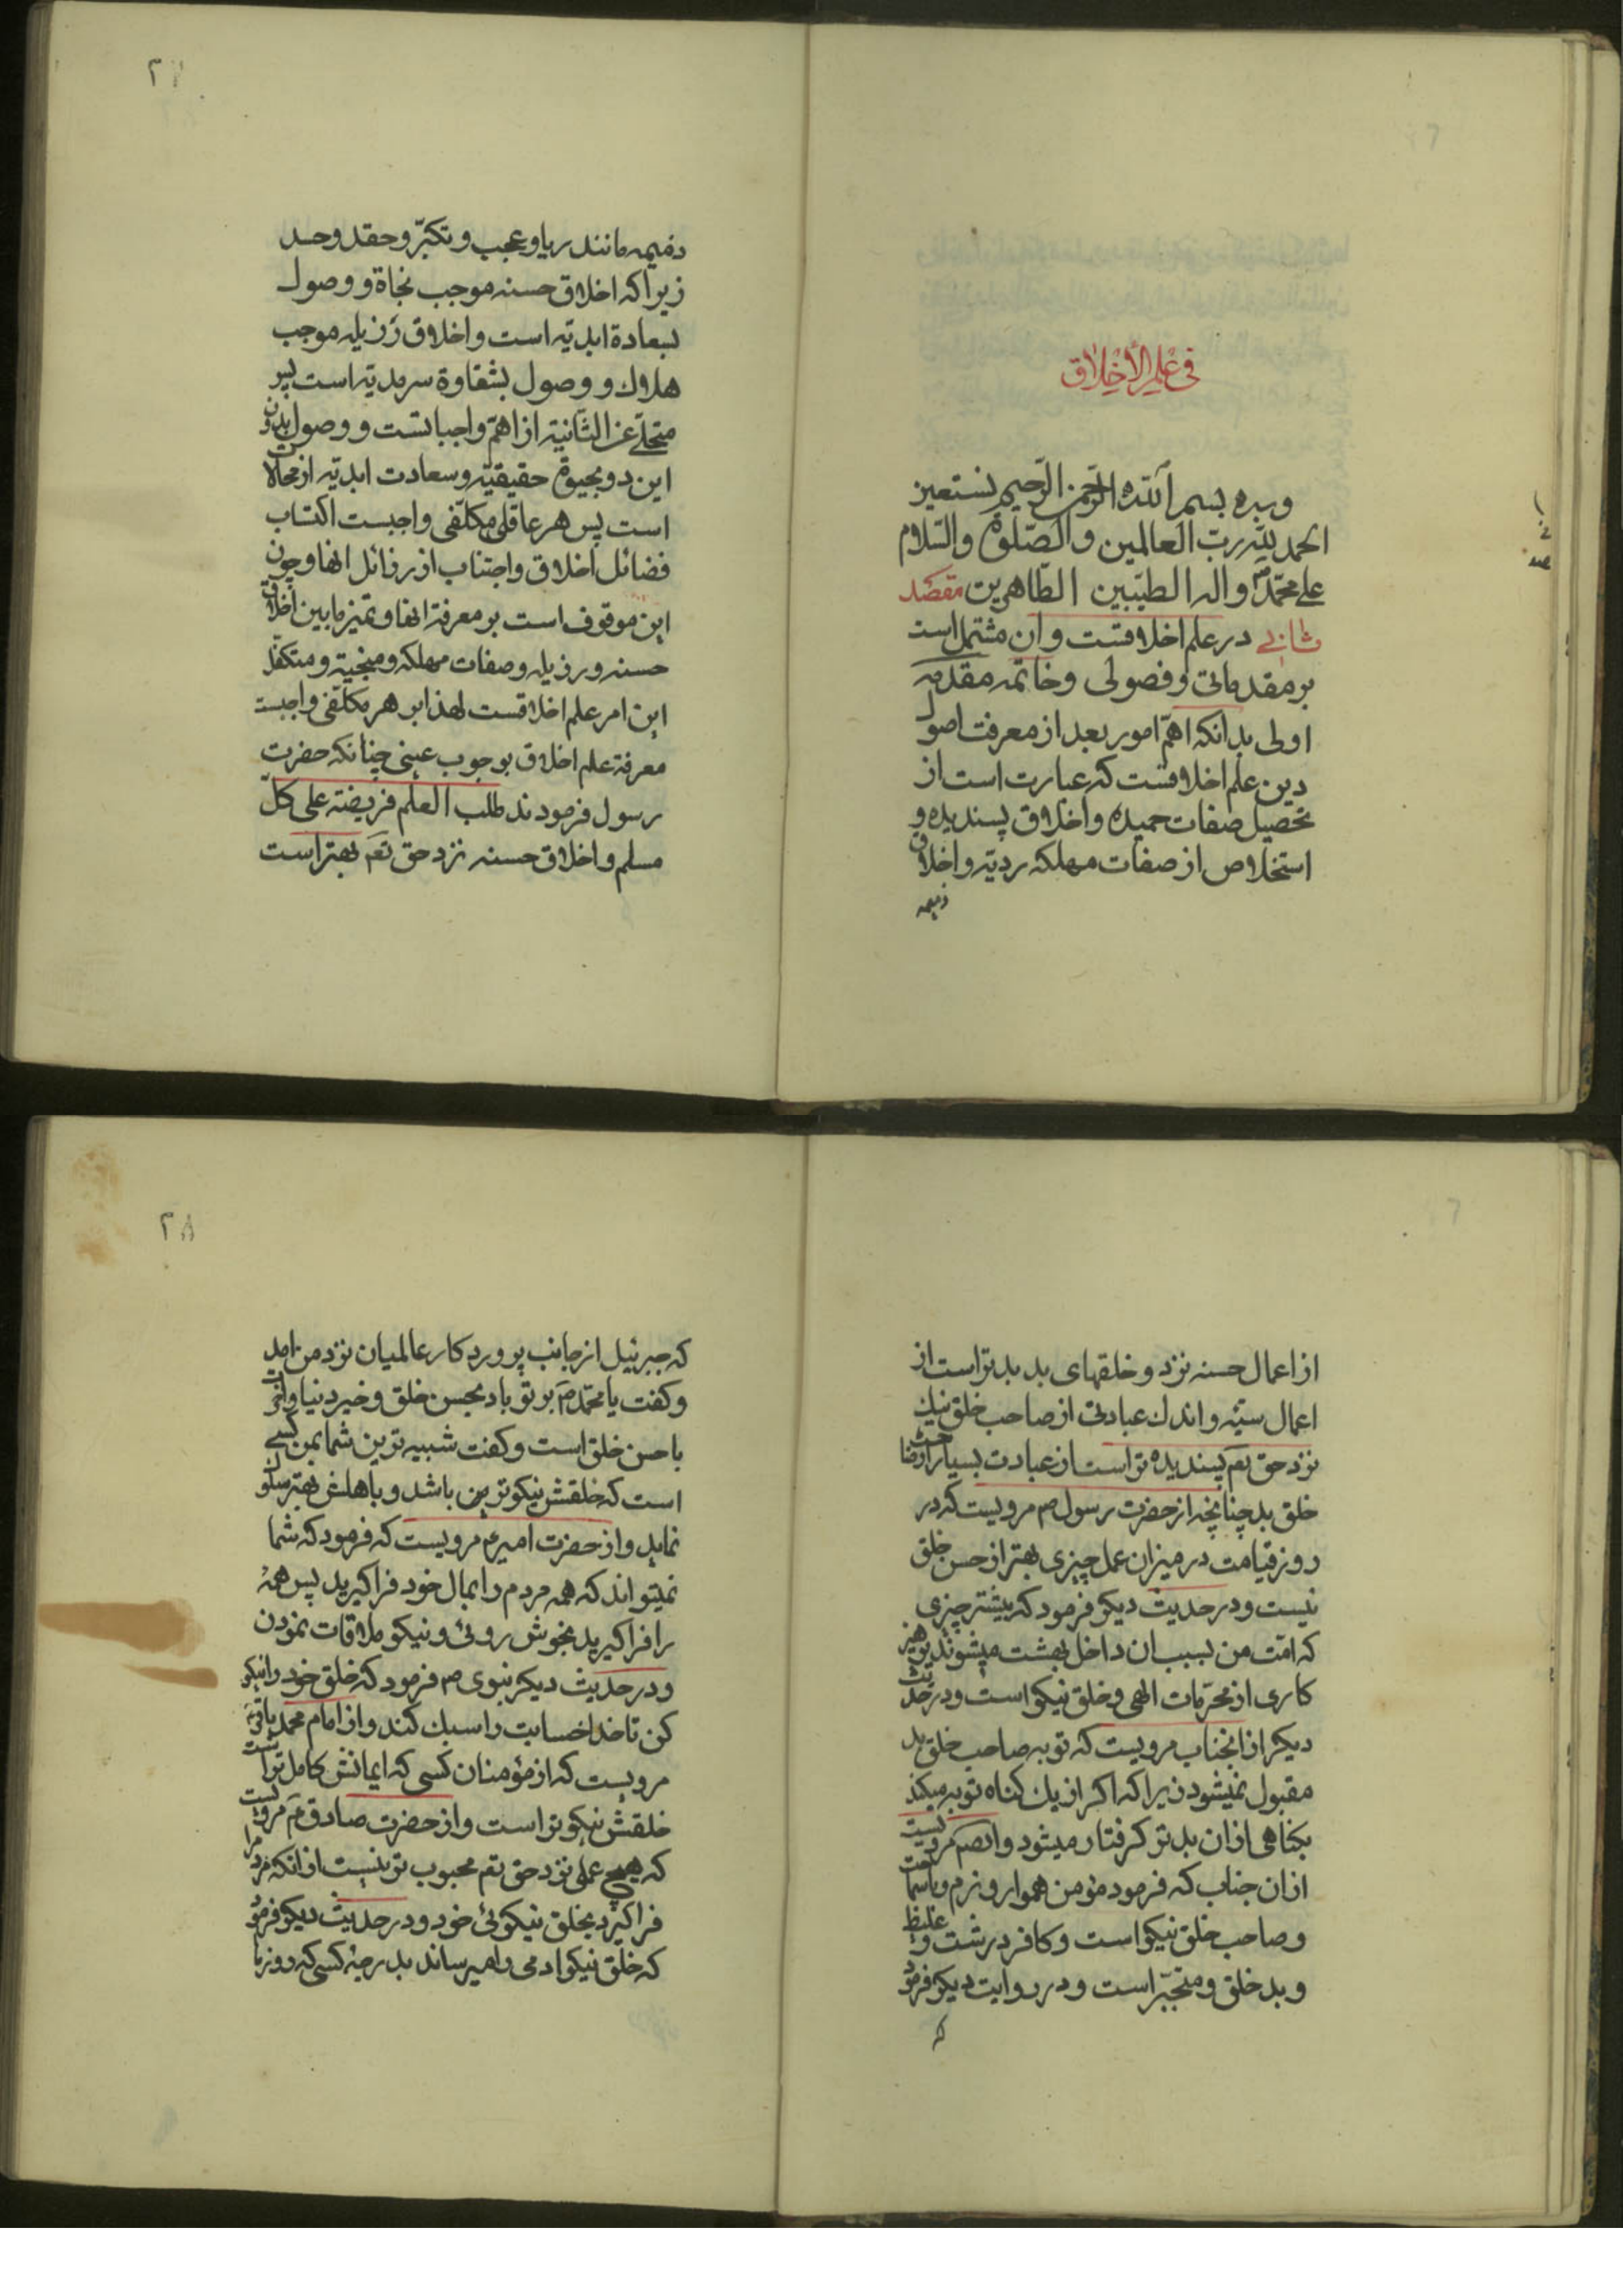 فی علم الأخلاق
وبه بسم الله الرحمن الرحیم نستعین
الحمد لله رب العالمین والصلوة والسلام
علی محمد واله الطیبین الطاهرین مقصد
ثانی در علم اخلاقست وان مشتمل است
بر مقدماتی وفصولی وخاتمه مقدمه
اولی بدانکه اهم امور بعد از معرفت اصول
دین علم اخلاقست که عبارت است از
تحصیل صفات حمیده واخلاق پسندیده و
استخلاص از صفات مهلکه ردیه واخلاق
ذمیمه
٢٧
ذمیمه مانند ریا وعجب و تکبّر وحقد وحسد
زیرا که اخلاق حسنه موجب نجاة و وصول
بسعادة ابدیّه است واخلاق رذیله موجب
هلاك و وصول بشقاوة سرمدیّه است پس
عن الثّانیة از اهمّ واجباتست و وصول بدون
این دو بحیوة حقیقیّه وسعادت ابدیّه از محالات
است پس هر عاقلی مکلّفی واجبست اکتساب
فضائل اخلاق واجتناب از رذائل انها وچون
این موقوف است بر معرفة انها وتمیز مابین اخلاق
حسنه ورذیله وصفات مهلکه ومنجیة ومتکفّل
این امر علم اخلاقست لهذا بر هر مکلّفی واجبست
معرفة علم اخلاق بوجوب عینی چنانکه حضرت
رسول فرمودند طلب العلم فریضة علی کلّ
مسلم واخلاق حسنه نزد حق تعم بهتر است
از اعمال حسنه نزد و خلقهای بد بدتر است از
اعمال سیّئه واندك عبادتی از صاحب خلق نیك
نزد حق تعم پسندیده تر است از عبادت بسیار از صاحب
خلق بد چنانچه از حضرت رسول صم مرویست که در
روز قیامت در میزان عمل چیزی بهتر از حسن خلق
نیست ودر حدیث دیکر فرمود که بیشتر چیزی
که امّت من بسبب ان داخل بهشت میشوند پرهیز
کاری از محرّمات الهی وخلق نیکو است ودر حدیث
دیکر از انجناب مرویست که توبه صاحب خلق بد
مقبول نمیشود زیرا که اکر از یك کناه توبه میکند
بکناهی از ان بدتر کرفتار میشود وایضم مرویست
از ان جناب که فرمود مؤمن هموار ونرم وباسماحت
وصاحب خلق نیکو است وکافر درشت وغلیظ
وبد خلق ومتجبّر است ودر روایت دیکر فرمود
که
٢٨
که جبرئیل از جانب پروردکار عالمیان نزد من امد
وکفت یا محمّد صم بر تو باد بحسن خلق وخیر دنیا واخرت
با حسن خلق است وکفت شبیه ترین شما بمن کسی
است که خلقش نیکوترین باشد وبا اهلش بهتر سلوك
نماید واز حضرت امیرم مرویست که فرمود که شما
نمیتواند که همه مردم را بمال خود فراکیرید پس همهٔ
را فراکیرید بخوش روئی ونیکو ملاقات نمودن
ودر حدیث دیکر نبوی صم فرمود که خلق خود را نیکو
کن تا خدا حسابت را سبك کند واز امام محمد باقر
مرویست که از مؤمنان کسی که ایمانش کامل تر است
خلقش نیکو تر است واز حضرت صادق م مرویست
که هیچ عملی نزد حق تعم محبوب تر نیست از انکه مردم را
فراکیرد بخلق نیکوئی خود ودر حدیث دیکر فرمود
که خلق نیکو ادمی را میرساند بدرجهٔ کسی که روزها